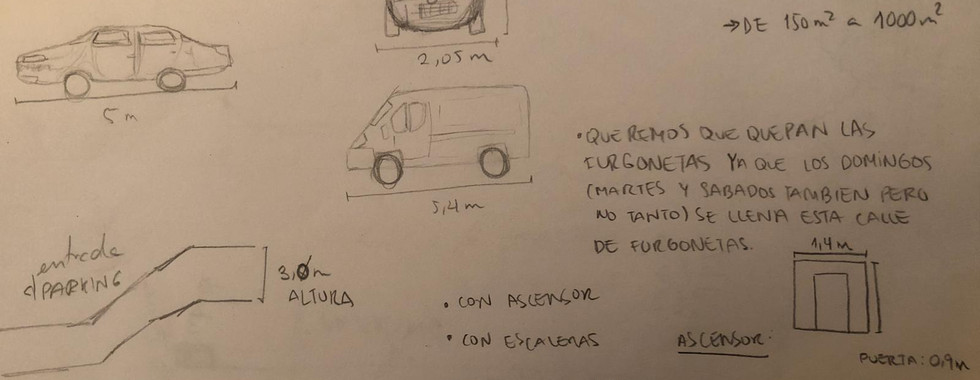 →DE 150m² a 1000m²
2,05m
5m
•QUEREMOS QUE QUEPAN LAS
FURGONETAS YA QUE LOS DOMINGOS
(MARTES Y SABADOS TAMBIEN PERO
NO TANTO) SE LLENA ESTA CALLE
DE FURGONETAS.
5,4m
entrada
PARKING
3,0m
ALTURA
• CON ASCENSOR
• CON ESCALERAS
ASCENSOR:
1,4m
PUERTA: 0,9m